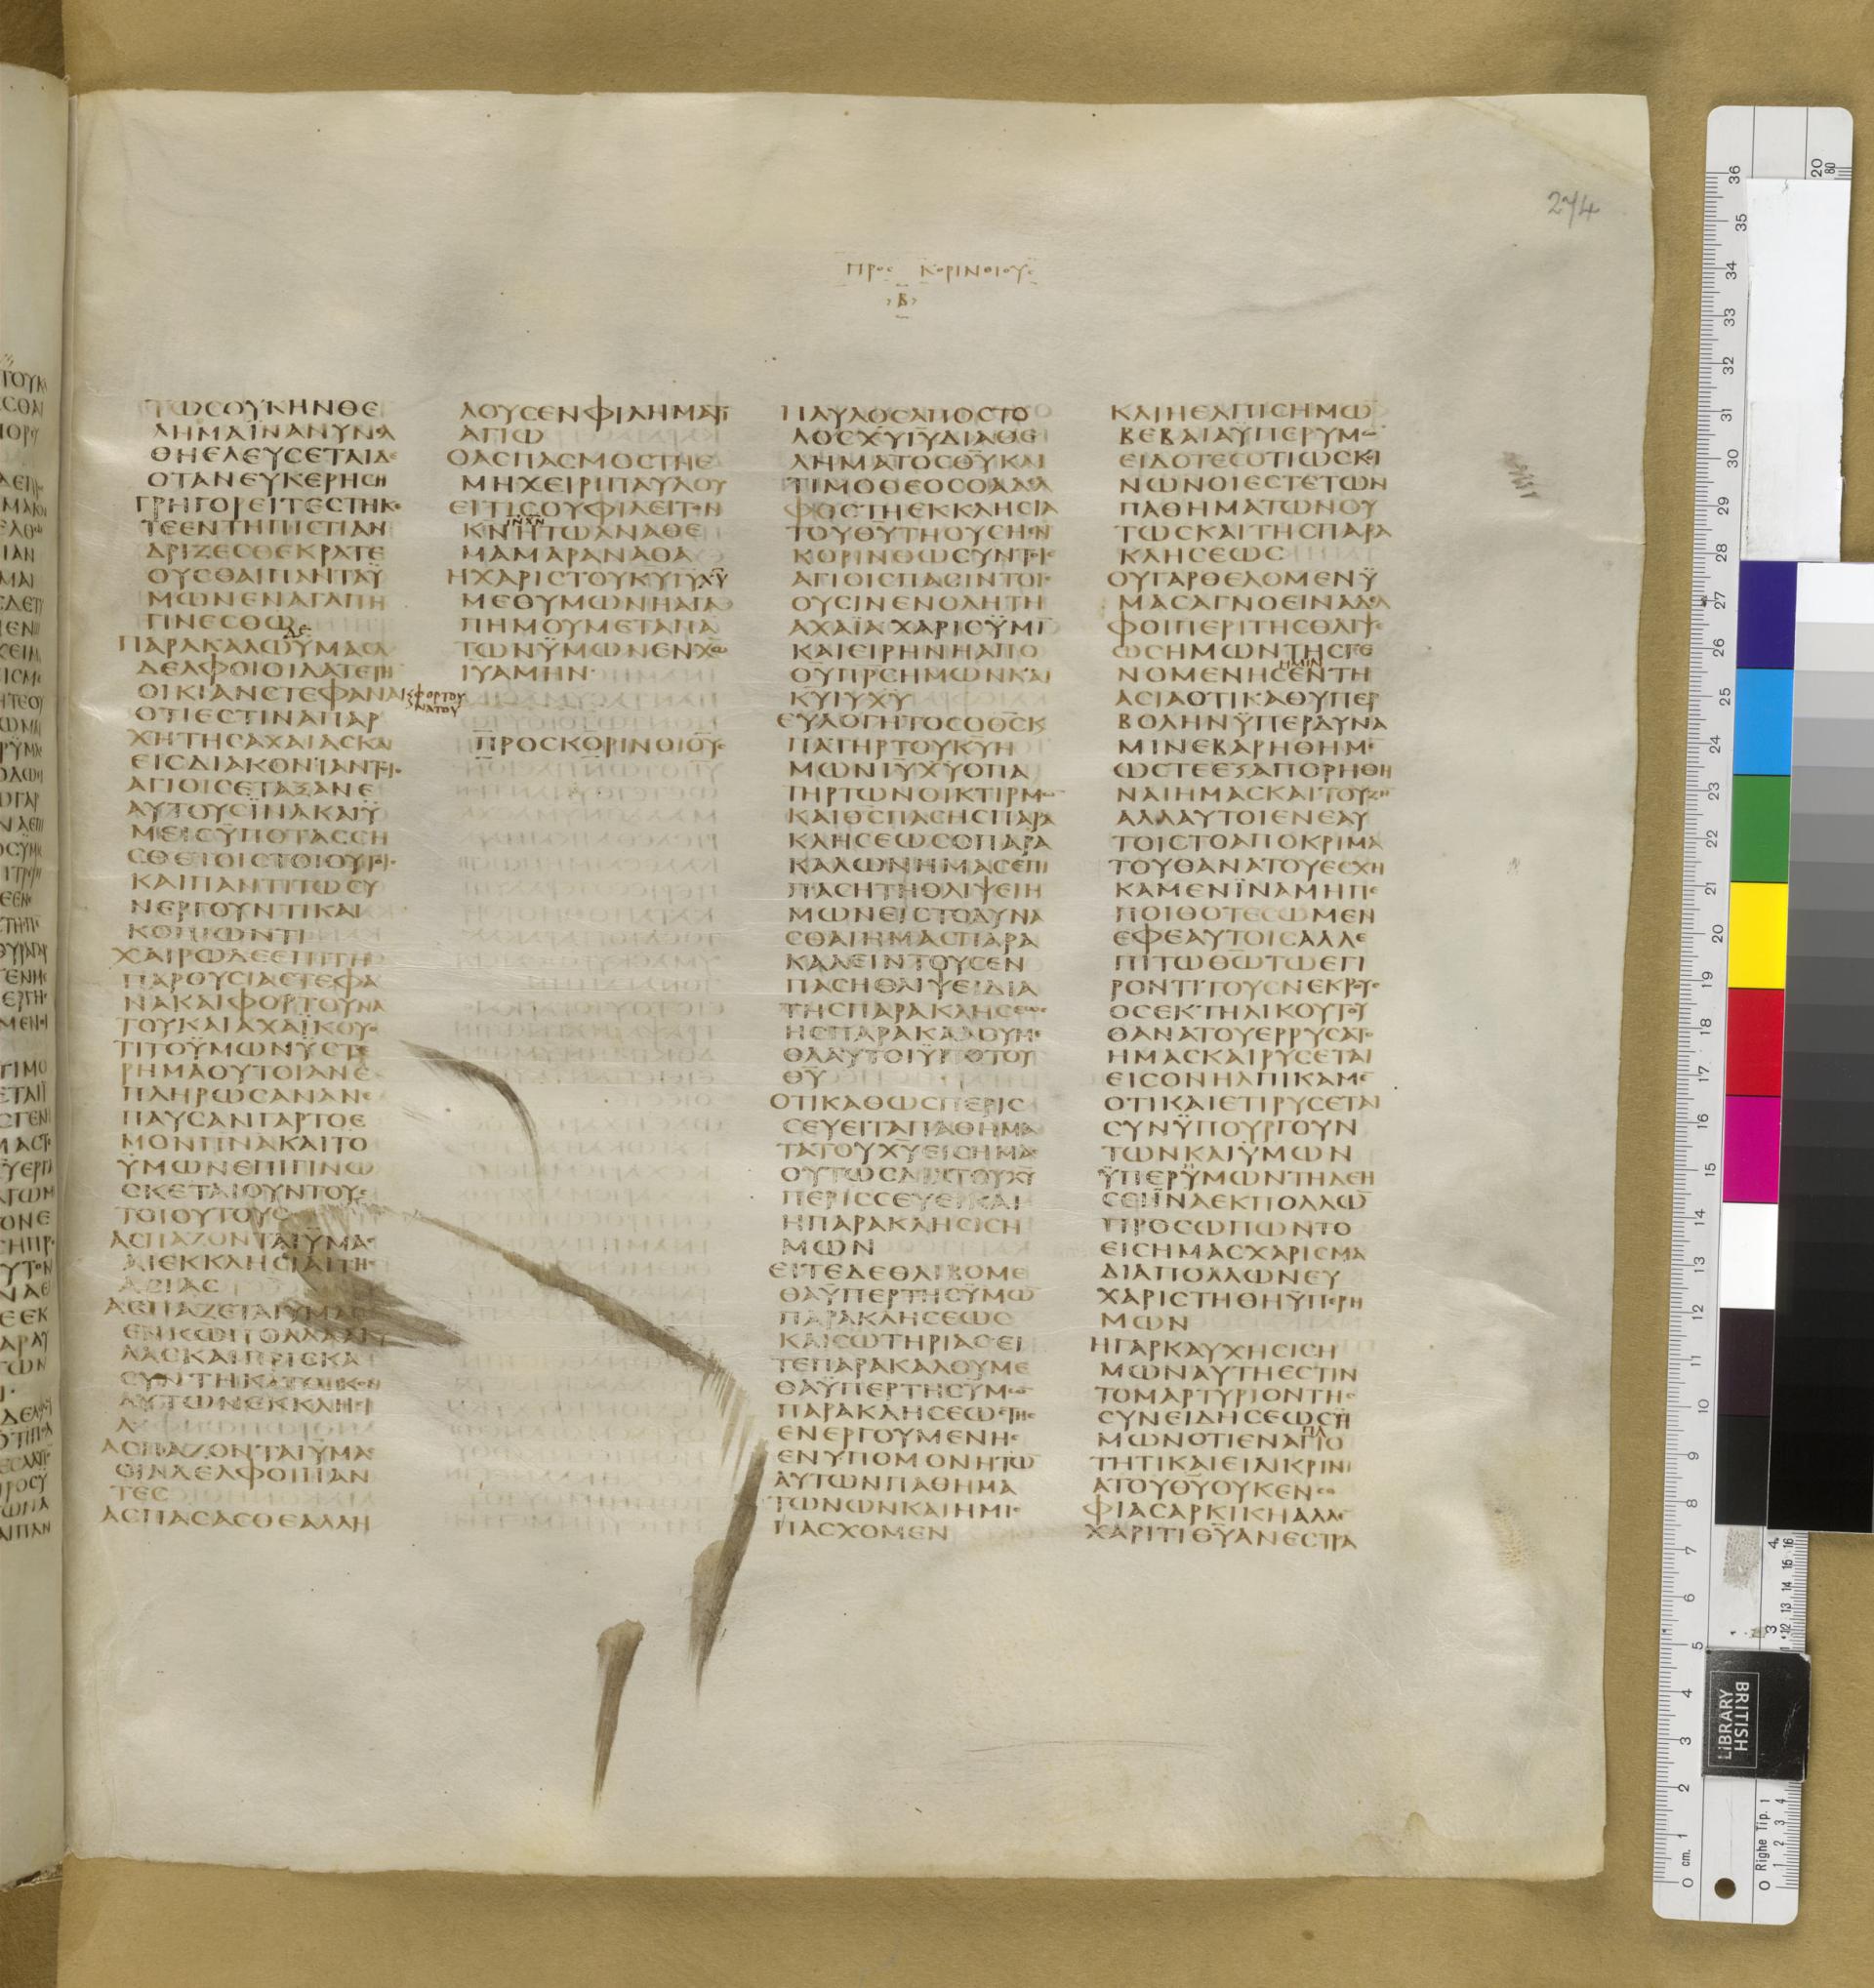 274
ΠΡΟΣ ΚΟΡΙΝΘΙΟΥΣ
Β
ΤΩϹΟΥΚΗΝΘΕ
ΛΗΜΑΪΝΑΝΥΝΕΛ
ΘΗΕΛΕΥϹΕΤΑΙΔΕ
ΟΤΑΝΕΥΚΕΡΗϹΗ
ΓΡΗΓΟΡΕΙΤΕϹΤΗΚΕ
ΤΕΕΝΤΗΠΙϹΤΙΑΝ
ΔΡΙΖΕϹΘΕΚΡΑΤΕ
ΟΥϹΘΑΙΠΑΝΤΑΫ
ΜΩΝΕΝΑΓΑΠΗ
ΓΙΝΕϹΘΩ
ΔΕ
ΠΑΡΑΚΑΛΩΫΜΑϹΑ
ΔΕΛΦΟΙΟΙΔΑΤΕΤΗ
ΟΙΚΙΑΝϹΤΕΦΑΝΑ
ΟΤΙΕϹΤΙΝΑΠΑΡ
ΧΗΤΗϹΑΧΑΙΑϹΚΑΙ
ΕΙϹΔΙΑΚΟΝΙΑΝΤΟΙϹ
ΑΓΙΟΙϹΕΤΑΞΑΝΕ
ΑΥΤΟΥϹΪΝΑΚΑΙΫ
ΜΕΙϹΫΠΟΤΑϹϹΗ
ϹΘΕΤΟΙϹΤΟΙΟΥΤΟΙϹ
ΚΑΙΠΑΝΤΙΤΩϹΥ
ΝΕΡΓΟΥΝΤΙΚΑΙ
ΚΟΠΙΩΝΤΙ
ΧΑΙΡΩΔΕΕΠΙΤΗ
ΠΑΡΟΥϹΙΑϹΤΕΦΑ
ΝΑΚΑΙΦΟΡΤΟΥΝΑ
ΤΟΥΚΑΙΑΧΑΪΚΟΥΟ
ΤΙΤΟΫΜΩΝΫϹΤΕ
ΡΗΜΑΟΥΤΟΙΑΝΕ
ΠΛΗΡΩϹΑΝΑΝΕ
ΠΑΥϹΑΝΓΑΡΤΟΕ
ΜΟΝΠΝΑΚΑΙΤΟ
ΫΜΩΝΕΠΙΓΙΝΩ
ϹΚΕΤΑΙΟΥΝΤΟΥϹ
ΤΟΙΟΥΤΟΥϹ
ΑϹΠΑΖΟΝΤΑΙΫΜΑϹ
ΑΙΕΚΚΛΗϹΙΑΙΤΗϹ
ΑϹΙΑϹ
ΑϹΠΑΖΕΤΑΙΫΜΑϹ
ΛΑϹΚΑΙΠΡΙϹΚΑ
ϹΥΝΤΗΚΑΤΟΙΚΟΝ
ΑΥΤΩΝΕΚΚΛΗϹΙ
Α
ΑϹΠΑΖΟΝΤΑΙΥΜΑ
ΟΙΑΔΕΛΦΟΙΠΑΝ
ΤΕϹ
ΑϹΠΑϹΑϹΘΕΑΛΛΗ
ΛΟΥϹΕΝΦΙΛΗΜΑΤΙ
ΑΓΙΩ
ΟΑϹΠΑϹΜΟϹΤΗΕ
ΜΗΧΕΙΡΙΠΑΥΛΟΥ
ΕΙΤΙϹΟΥΦΙΛΕΙΤΟΝ
ΙΝΧΝ
ΚΝΗΤΩΑΝΑΘΕ
ΜΑΜΑΡΑΝΑΘΑ
ΗΧΑΡΙϹΤΟΥΚΥΙΥΧΥ
ΜΕΘΥΜΩΝΗΑΓΑ
ΠΗΜΟΥΜΕΤΑΠΑ
ΤΩΝΫΜΩΝΕΝΧΩ
ΙΥΑΜΗΝ
ΠΡΟϹΚΟΡΙΝΘΙΟΥϹ
ΠΑΥΛΟϹΑΠΟϹΤΟ
ΛΟϹΧΥΙΥΔΙΑΘΕ
ΛΗΜΑΤΟϹΘΥΚΑΙ
ΤΙΜΟΘΕΟϹΟΑΔΕΛ
ΦΟϹΤΗΕΚΚΛΗϹΙΑ
ΤΟΥΘΥΤΗΟΥϹΗΕΝ
ΚΟΡΙΝΘΩϹΥΝΤΟΙϹ
ΑΓΙΟΙϹΠΑϹΙΝΤΟΙϹ
ΟΥϹΙΝΕΝΟΛΗΤΗ
ΑΧΑΪΑΧΑΡΙϹΫΜΙ
ΚΑΙΕΙΡΗΝΗΑΠΟ
ΘΥΠΡϹΗΜΩΝΚΑΙ
ΚΥΙΥΧΥ
ΕΥΛΟΓΗΤΟϹΟΘϹΚ
ΠΑΤΗΡΤΟΥΚΥΗ
ΜΩΝΙΥΧΥΟΠΑ
ΤΗΡΤΩΝΟΙΚΤΙΡΜΩ
ΚΑΙΘϹΠΑϹΗϹΠΑΡΑ
ΚΛΗϹΕΩϹΟΠΑΡΑ
ΚΑΛΩΝΗΜΑϹΕΠΙ
ΠΑϹΗΤΗΘΛΙΨΕΙΗ
ΜΩΝΕΙϹΤΟΔΥΝΑ
ϹΘΑΙΗΜΑϹΠΑΡΑ
ΚΑΛΕΙΝΤΟΥϹΕΝ
ΠΑϹΗΘΛΙΨΕΙΔΙΑ
ΤΗϹΠΑΡΑΚΛΗϹΕΩϹ
ΗϹΠΑΡΑΚΑΛΟΥΜΕ
ΘΑΑΥΤΟΙΫΠΟΤΟΥ
ΘΥ
ΟΤΙΚΑΘΩϹΠΕΡΙϹ
ϹΕΥΕΙΤΑΠΑΘΗΜΑ
ΤΑΤΟΥΧΥΕΙϹΗΜΑϹ
ΟΥΤΩϹΔΙΑΤΟΥΧΥ
ΠΕΡΙϹϹΕΥΕΙΚΑΙ
ΗΠΑΡΑΚΛΗϹΙϹΗ
ΜΩΝ
ΕΙΤΕΔΕΘΛΙΒΟΜΕ
ΘΑΫΠΕΡΤΗϹΫΜΩ
ΠΑΡΑΚΛΗϹΕΩϹ
ΚΑΙϹΩΤΗΡΙΑϹΕΙ
ΤΕΠΑΡΑΚΑΛΟΥΜΕ
ΘΑΫΠΕΡΤΗϹΫΜΩ
ΠΑΡΑΚΛΗϹΕΩϹΤΗϹ
ΕΝΕΡΓΟΥΜΕΝΗϹ
ΕΝΥΠΟΜΟΝΗΤΩ
ΑΥΤΩΝΠΑΘΗΜΑ
ΤΩΝΩΝΚΑΙΗΜΙϹ
ΠΑϹΧΟΜΕΝ
ΚΑΙΗΕΛΠΙϹΗΜΩ
ΒΕΒΑΙΑΫΠΕΡΥΜΩ
ΕΙΔΟΤΕϹΟΤΙΩϹΚΟΙ
ΝΩΝΟΙΕϹΤΕΤΩΝ
ΠΑΘΗΜΑΤΩΝΟΥ
ΤΩϹΚΑΙΤΗϹΠΑΡΑ
ΚΛΗϹΕΩϹ
ΟΥΓΑΡΘΕΛΟΜΕΝΫ
ΜΑϹΑΓΝΟΕΙΝΑΔΕΛ
ΦΟΙΠΕΡΙΤΗϹΘΛΙΨΕ
ΩϹΗΜΩΝΤΗϹΓΕ
ΗΜΙΝ
ΝΟΜΕΝΗϹΕΝΤΗ
ΑϹΙΑΟΤΙΚΑΘΥΠΕΡ
ΒΟΛΗΝΫΠΕΡΔΥΝΑ
ΜΙΝΕΒΑΡΗΘΗΜΕ
ΩϹΤΕΕΞΑΠΟΡΗΘΗ
ΝΑΙΗΜΑϹΚΑΙΤΟΥΖΗ
ΑΛΛΑΥΤΟΙΕΝΕΑΥ
ΤΟΙϹΤΟΑΠΟΚΡΙΜΑ
ΤΟΥΘΑΝΑΤΟΥΕϹΧΗ
ΚΑΜΕΝΪΝΑΜΗΠΕ
ΠΟΙΘΟΤΕϹΩΜΕΝ
ΕΦΕΑΥΤΟΙϹΑΛΛΕ
ΠΙΤΩΘΩΤΩΕΓΙ
ΡΟΝΤΙΤΟΥϹΝΕΚΡΟΥϹ
ΟϹΕΚΤΗΛΙΚΟΥΤΟΥ
ΘΑΝΑΤΟΥΕΡΡΥϹΑΤΟ
ΗΜΑϹΚΑΙΡΥϹΕΤΑΙ
ΕΙϹΟΝΗΛΠΙΚΑΜΕ
ΟΤΙΚΑΙΕΤΙΡΥϹΕΤΑΙ
ϹΥΝΫΠΟΥΡΓΟΥΝ
ΤΩΝΚΑΙΫΜΩΝ
ΫΠΕΡΫΜΩΝΤΗΔΕΗ
ϹΕΙΪΝΑΕΚΠΟΛΛΩ
ΠΡΟϹΩΠΩΝΤΟ
ΕΙϹΗΜΑϹΧΑΡΙϹΜΑ
ΔΙΑΠΟΛΛΩΝΕΥ
ΧΑΡΙϹΤΗΘΗΫΠΕΡΗ
ΜΩΝ
ΗΓΑΡΚΑΥΧΗϹΙϹΗ
ΜΩΝΑΥΤΗΕϹΤΙΝ
ΤΟΜΑΡΤΥΡΙΟΝΤΗϹ
ϹΥΝΕΙΔΗϹΕΩϹΗ
ΜΩΝΟΤΙΕΝΑΓΙΟ
ΤΗΤΙΚΑΙΕΙΛΙΚΡΙΝΙ
ΑΤΟΥΘΥΟΥΚΕΝϹΟ
ΦΙΑϹΑΡΚΙΚΗΑΛΛΕ
ΧΑΡΙΤΙΘΥΑΝΕϹΤΡΑ
BRITISH
LIBRARY
0 cm. 1 2 3 4 5 6 7 8 9 10 11 12 13 14 15 16 17 18 19 20 21 22 23 24 25 26 27 28 29 30 31 32 33 34 35 36
0 Righe Tip. 1